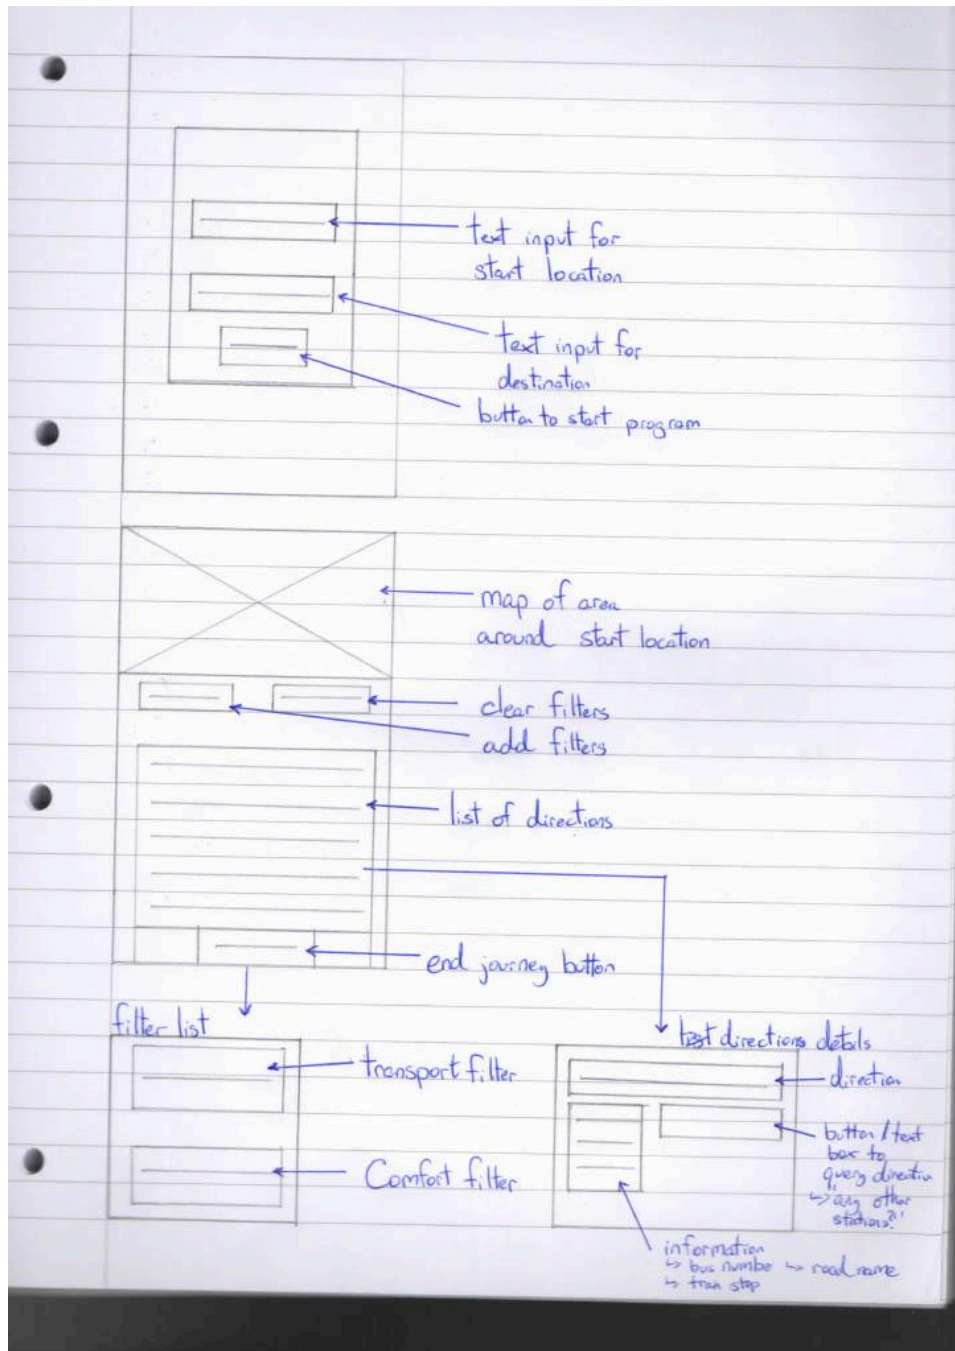 text input for
start location
text input for
destination
button to start program
map of area
around start location
clear filters
add filters
list of directions
end journey button
filter list
transport filter
Comfort filter
directions details
direction
button / text
box to
query direction
↳ "any other
stations?"
information
↳ bus numbe ↳ road name
↳ tran stop